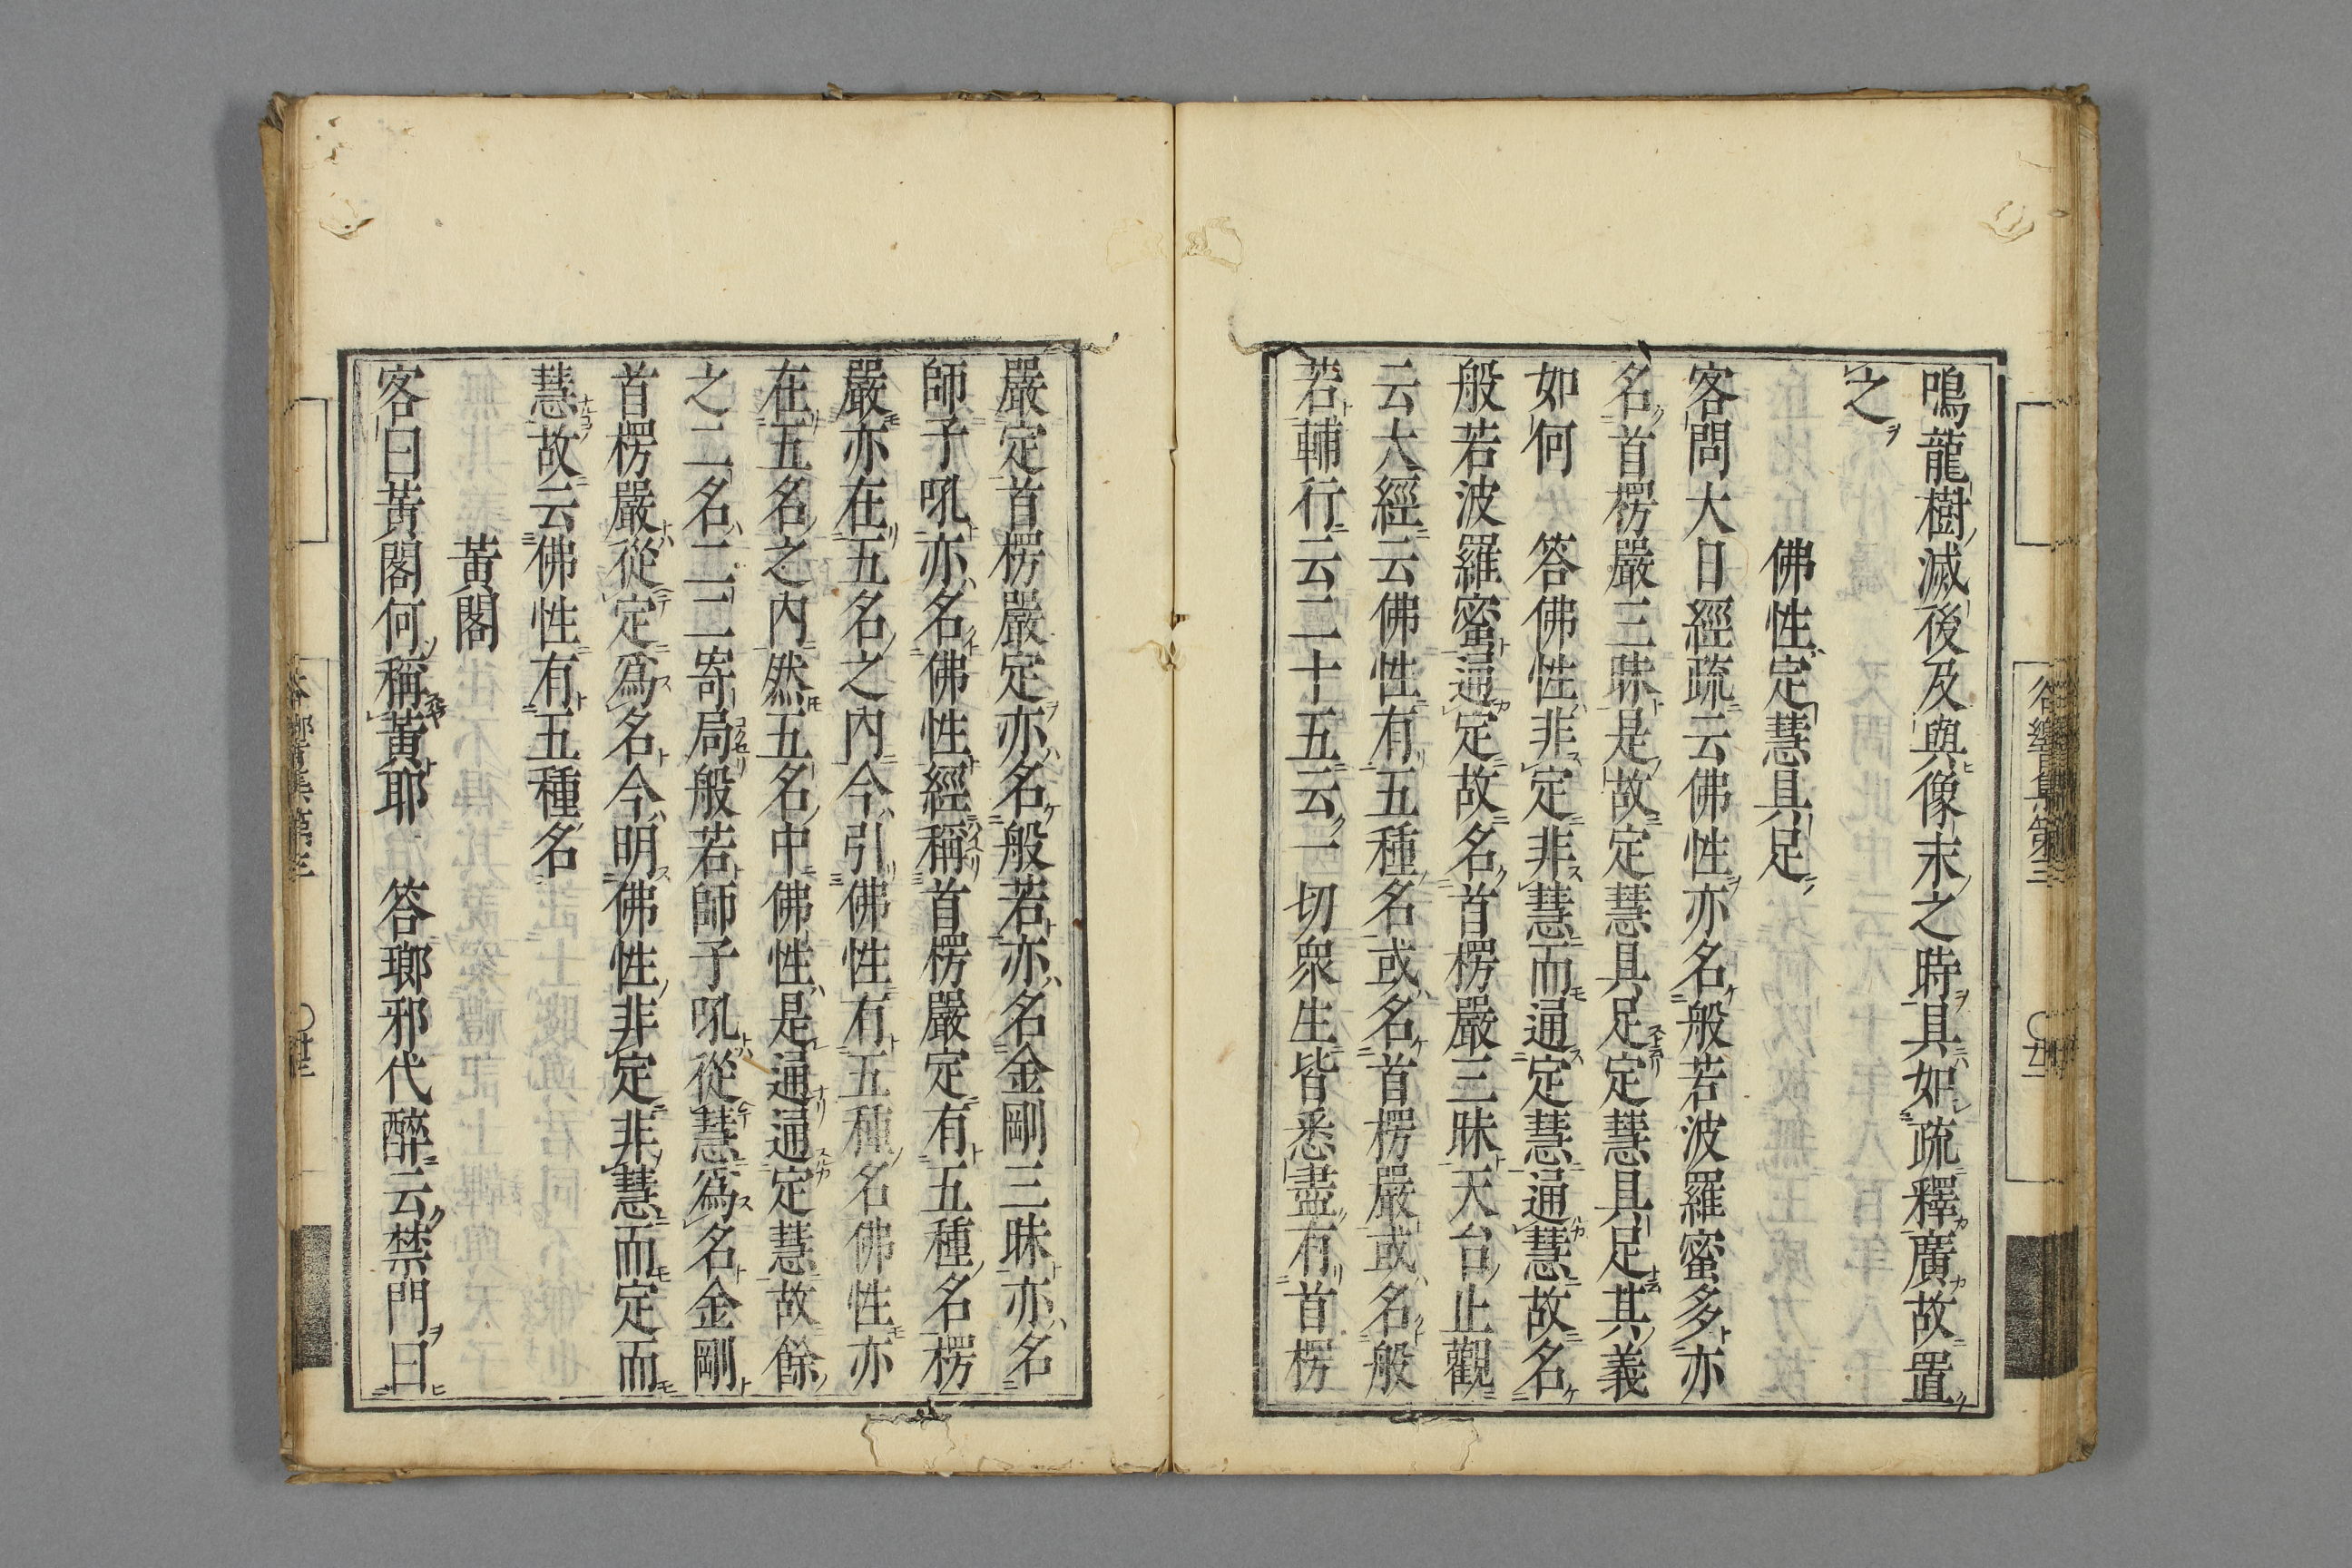 鳴龍樹滅後及與像末之時具如疏釋廣故置
之
佛性定慧具足
客問大日經疏云佛性亦名般若波羅蜜多亦
名首楞嚴三昧是故定慧具足定慧具足其義
如何 答佛性非定非慧而通定慧通慧故名
般若波羅蜜通定故名首楞嚴三昧天台止觀
云大經云佛性有五種名或名首楞嚴或名般
若輔行云二十五云一切衆生皆悉盡有首楞
嚴定首楞嚴定亦名般若亦名金剛三昧亦名
師子吼亦名佛性經稱首楞嚴定有五種名楞
嚴亦在五名之內今引佛性有五種名佛性亦
在五名之內然五名中佛性是通通定慧故餘
之二名二二寄局般若師子吼從慧爲名金剛
首楞嚴從定爲名今明佛性非定非慧而定而
慧故云佛性有五種名
黃閣
客曰黃閣何稱黃耶 答瑯邪代醉云禁門曰